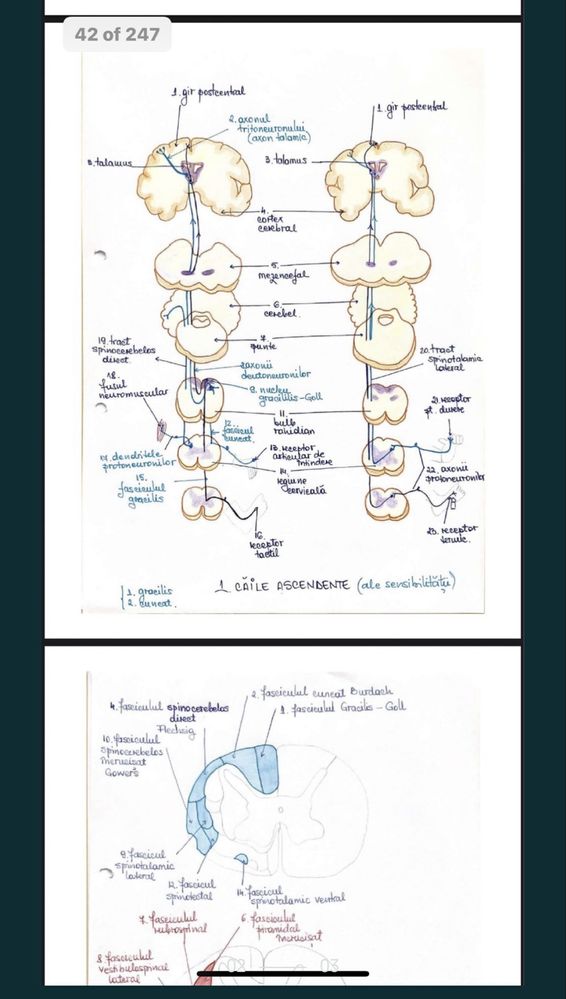 42 of 247
1. gir postcentral
2. axonul
tritoneuronului
(axon talamic)
3. talamus
1. gir postcentral
3. talamus
4.
cortex
cerebral
5.
mezencefal
6.
cerebel.
7.
punte
19. tract
spinocerebelos
direct
8. axonii
deutoneuronilor
9. nucleu
gracilis-Goll
20. tract
spinotalamic
lateral
18.
fusul
neuromuscular
11.
bulb
rahidian
12.
fascicul
cuneat.
21. receptor
pt. durere
17. dendritele
protoneuronilor
13. receptor
articular de
întindere
14.
regiune
cervicală
22. axonii
protoneuronilor
15.
fasciculul
gracilis
16.
receptor
tactil
23. receptor
termic.
1. gracilis
2. cuneat.
1. CĂILE ASCENDENTE (ale sensibilității)
2. fasciculul cuneat Burdach
1. fasciculul Gracilis - Goll
4. fasciculul spinocerebelos
direct
Flechsig
10. fasciculul
spinocerebelos
încrucișat
Gowers
9. fascicul
spinotalamic
lateral
12. fascicul
spinotectal
14. fascicul
spinotalamic ventral
7. fasciculul
rubrospinal
6. fasciculul
piramidal
încrucișat
8. fasciculul
vestibulospinal
lateral
02
03